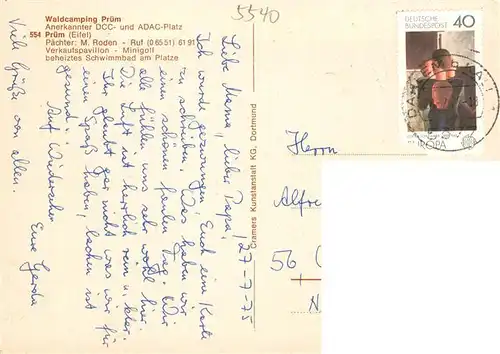 5540
Waldcamping Prüm
Anerkannter DCC- und ADAC-Platz
554 Prüm (Eifel)
Pächter: M. Roden - Ruf (0 65 51) 61 91
Verkaufspavillon - Minigolf
beheiztes Schwimmbad am Platze
DEUTSCHE
BUNDESPOST
40
EUROPA
27-7-75
Liebe Mama, lieber Papa!
Ich wurde gezwungen, Euch eine Karte
zu schreiben. Das haben wir
einen schönen faulen Tag. Wir
alle fühlen uns sehr wohl hier.
Die Luft ist herrlich rein u. klar.
Ihr glaubt gar nicht was wir für
einen Spaß haben, lachen ist
gesund!
Auf Wiedersehen
Eure Gerda
Viele Grüße von allen.
Cramers Kunstanstalt KG, Dortmund
Herrn
Alfre
56
N